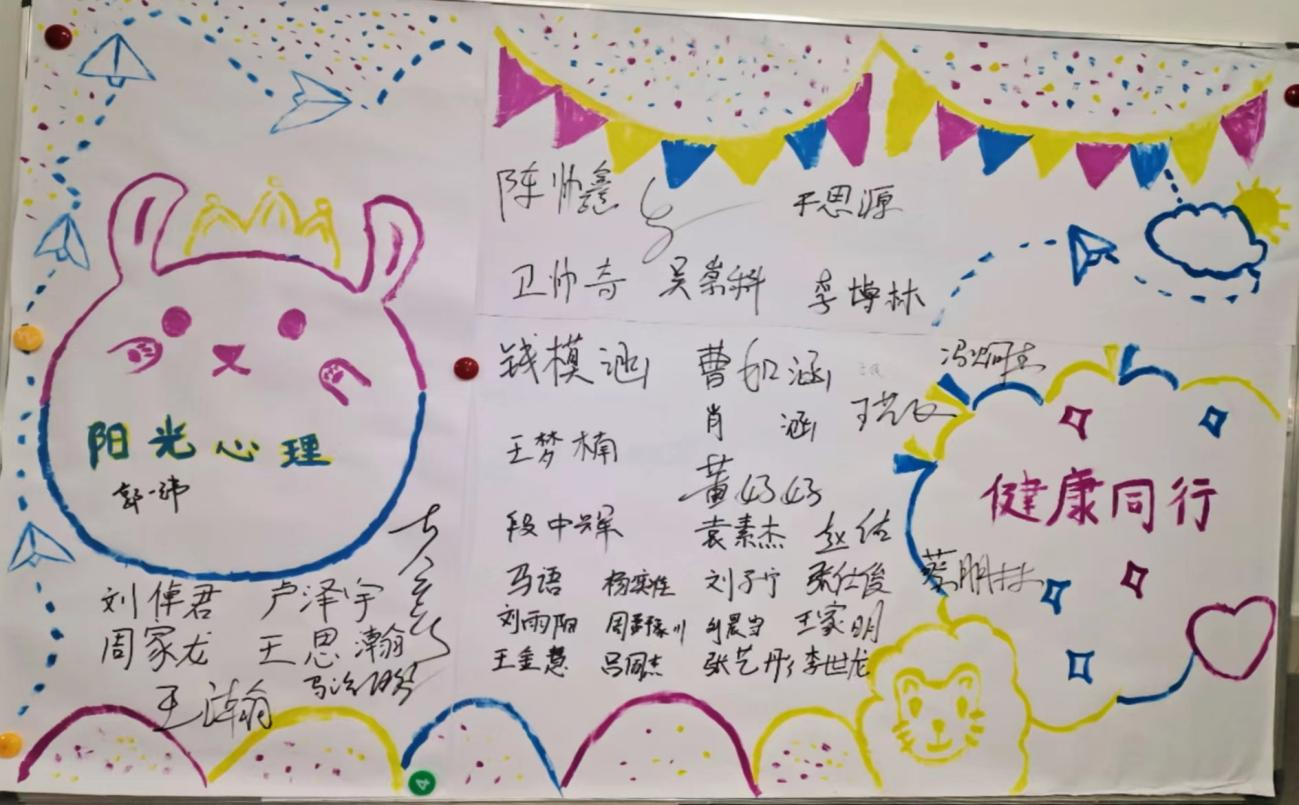 陈帅鑫
于思源
卫帅奇 吴崇科 李博林
钱模涵 曹如涵
肖涵
王梦楠
黄好好
段中辉 袁素杰 赵佑
马语 杨奕佳 刘子宁 张仕俊
刘雨阳 王家明
王金慧 吕同杰 张艺彤 李世龙
蔡明
阳光心理
郭一玮
刘倬君 卢泽宇
周家龙 王思瀚
王瀚
健康同行
4